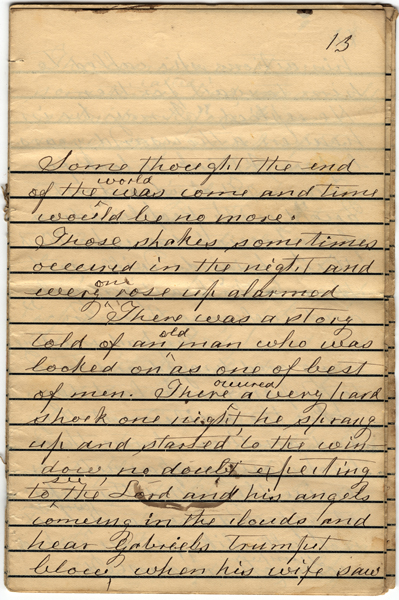 13
Some thought the end
of the world was come and time
would be no more.
Those shakes sometimes
occured in the night and
were one rose up alarmed
There was a story
told of an old man who was
looked on as one of best
of men. There occured a very hard
shock one night, he sprang
up and started to the win
dow no doubt expecting
to see the Lord and his angels
comeing in the clouds and
hear Gabriels trumpet
blow, when his wife saw